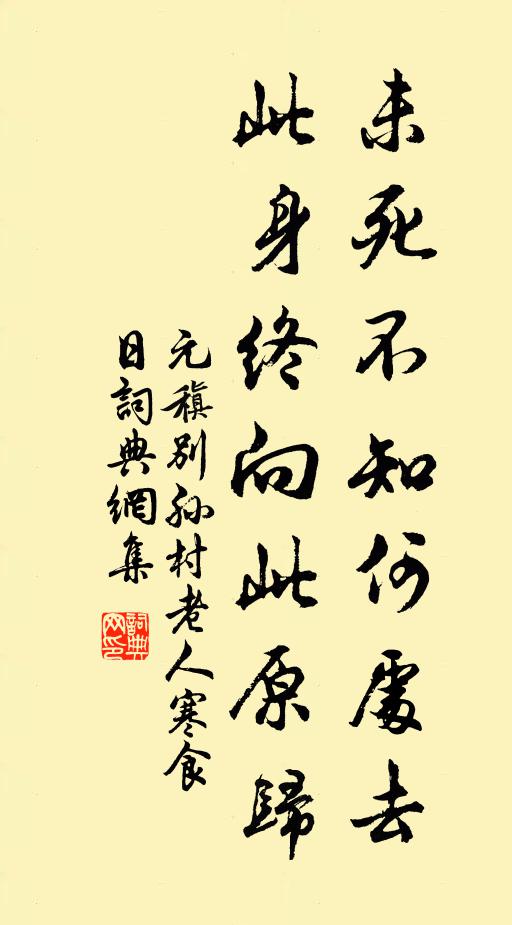 未死不知何處去
此身終向此原歸
元稹別孫村老人寒食
日詞典網集
詞典
网印